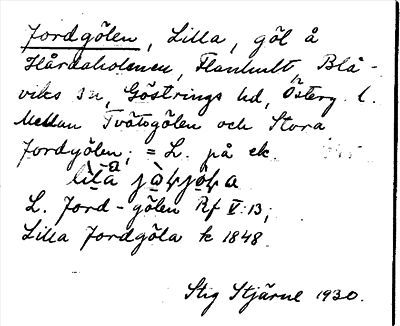 Jordgölen, Lilla, göl å
Hårdaholmen, Flanhult, Blå-
viks sn, Göstrings hd, Österg. l.
Mellan Tvätsgölen och Stora
Jordgölen; = L. på ek.
L. Jord-gölen Rf V:13;
Lilla Jordgöla k 1848.
Stig Stjärne 1930.